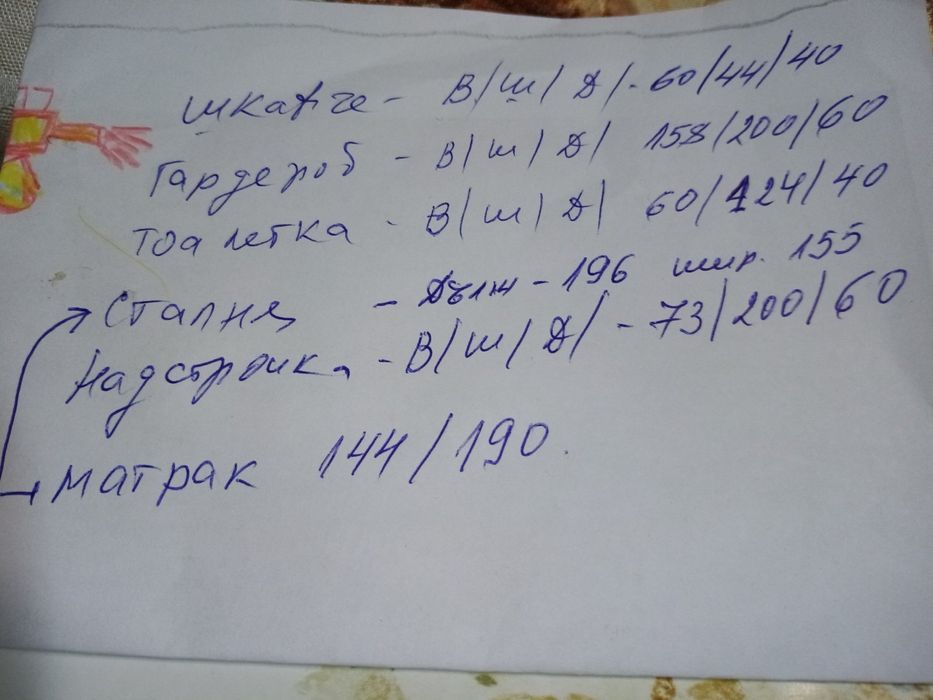 шкафче - В/Ш/Д/ - 60/44/40
Гардероб - В/Ш/Д/ 158/200/60
тоалетка - В/Ш/Д/ 60/124/40
Сталня - Дълж - 196 шир. 155
Надстройка - В/Ш/Д/ - 73/200/60
→ матрак 144/190.